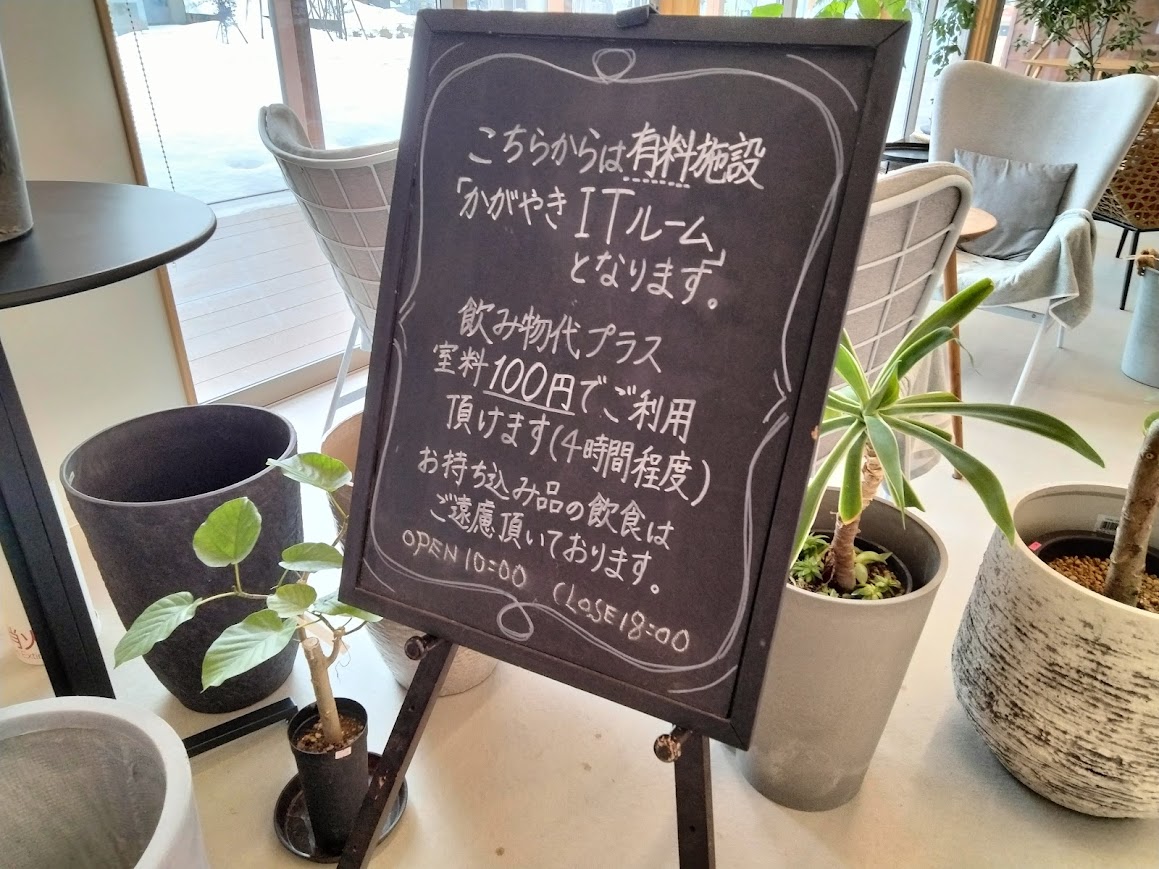 こちらからは有料施設
「かがやきITルーム」
となります。
飲み物代プラス
室料100円でご利用
頂けます(4時間程度)
お持ち込み品の飲食は
ご遠慮頂いております。
OPEN 10:00 CLOSE 18:00